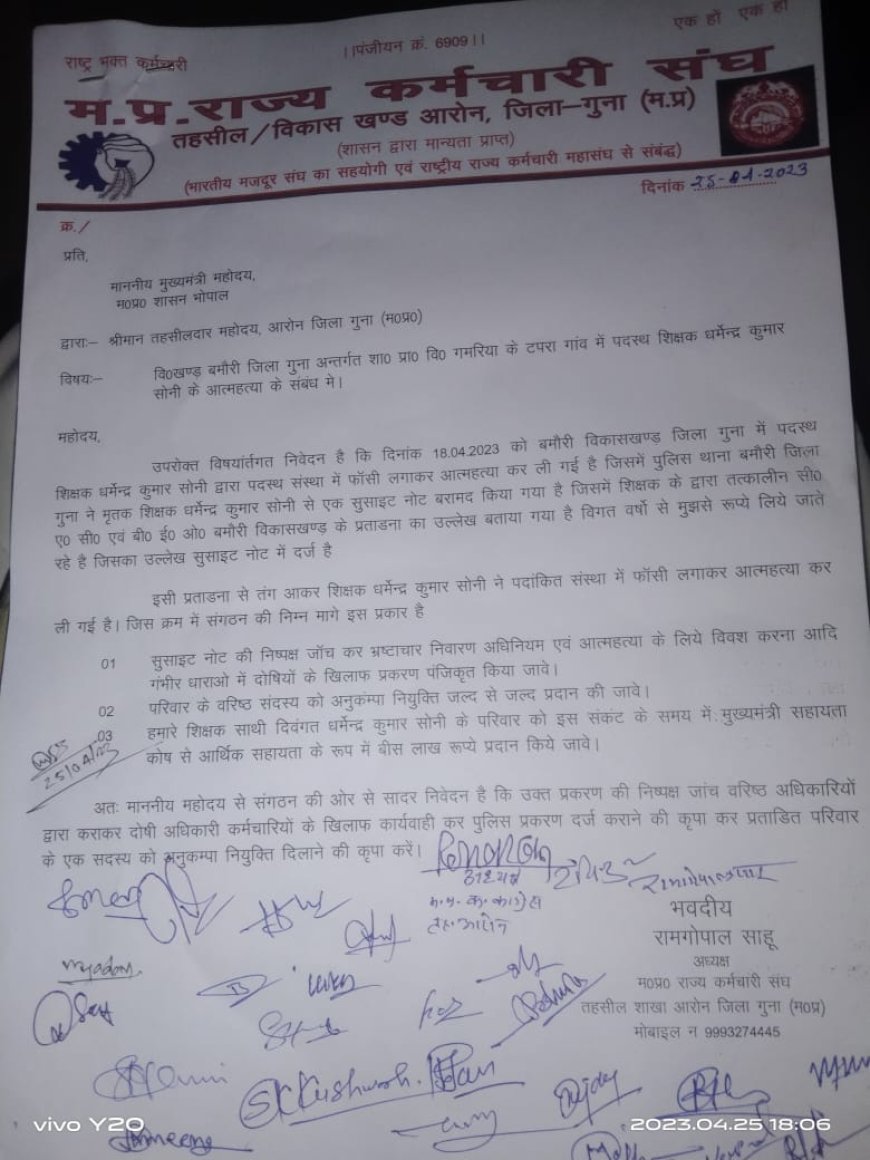 एक हों एक हों
।।पंजीयन क्रं. 6909।।
राष्ट्र भक्त कर्मचारी
म.प्र.राज्य कर्मचारी संघ
तहसील/विकास खण्ड आरोन, जिला–गुना (म.प्र)
(शासन द्वारा मान्यता प्राप्त)
(भारतीय मजदूर संघ का सहयोगी एवं राष्ट्रीय राज्य कर्मचारी महासंघ से संबंद्व)
दिनांक 25-04-2023
क्र./
प्रति,
माननीय मुख्यमंत्री महोदय,
म0प्र0 शासन भोपाल
द्वाराः– श्रीमान तहसीलदार महोदय, आरोन जिला गुना (म0प्र0)
विषयः– वि0खण्ड बमौरी जिला गुना अन्तर्गत शा0 प्रा0 वि0 गमरिया के टपरा गांव में पदस्थ शिक्षक धर्मेन्द्र कुमार
सोनी के आत्महत्या के संबंध मे।
महोदय,
उपरोक्त विषयांर्तगत निवेदन है कि दिनांक 18.04.2023 को बमौरी विकासखण्ड जिला गुना में पदस्थ
शिक्षक धर्मेन्द्र कुमार सोनी द्वारा पदस्थ संस्था में फॉसी लगाकर आत्महत्या कर ली गई है जिसमें पुलिस थाना बमौरी जिला
गुना ने मृतक शिक्षक धर्मेन्द्र कुमार सोनी से एक सुसाइट नोट बरामद किया गया है जिसमें शिक्षक के द्वारा तत्कालीन सी0
ए0 सी0 एवं बी0 ई0 ओ0 बमौरी विकासखण्ड के प्रताडना का उल्लेख बताया गया है विगत वर्षो से मुझसे रूप्ये लिये जाते
रहे है जिसका उल्लेख सुसाइट नोट में दर्ज है
इसी प्रताडना से तंग आकर शिक्षक धर्मेन्द्र कुमार सोनी ने पदांकित संस्था में फॉसी लगाकर आत्महत्या कर
ली गई है। जिस क्रम में संगठन की निम्न मागे इस प्रकार है
01 सुसाइट नोट की निष्पक्ष जॉच कर भ्रष्टाचार निवारण अधिनियम एवं आत्महत्या के लिये विवश करना आदि
गंभीर धाराओ में दोषियों के खिलाफ प्रकरण पंजिकृत किया जावे।
02 परिवार के वरिष्ठ संदस्य को अनुकम्पा नियुक्ति जल्द से जल्द प्रदान की जावे।
03 हमारे शिक्षक साथी दिवंगत धर्मेन्द्र कुमार सोनी के परिवार को इस संकंट के समय में मुख्यमंत्री सहायता
कोष से आर्थिक सहायता के रूप में बीस लाख रूप्ये प्रदान किये जावे।
25/04/23
अतः माननीय महोदय से संगठन की ओर से सादर निवेदन है कि उक्त प्रकरण की निष्पक्ष जांच वरिष्ठ अधिकारियों
द्वारा कराकर दोषी अधिकारी कर्मचारियों के खिलाफ कार्यवाही कर पुलिस प्रकरण दर्ज कराने की कृपा कर प्रताडित परिवार
के एक सदस्य को अनुकम्पा नियुक्ति दिलाने की कृपा करें।
अध्यक्ष
तह. आरोन
भवदीय
रामगोपाल साहू
अध्यक्ष
म0प्र0 राज्य कर्मचारी संघ
तहसील शाखा आरोन जिला गुना (म0प्र)
मोबाइल न 9993274445
SKKushwah.
vivo Y20
2023.04.25 18:06